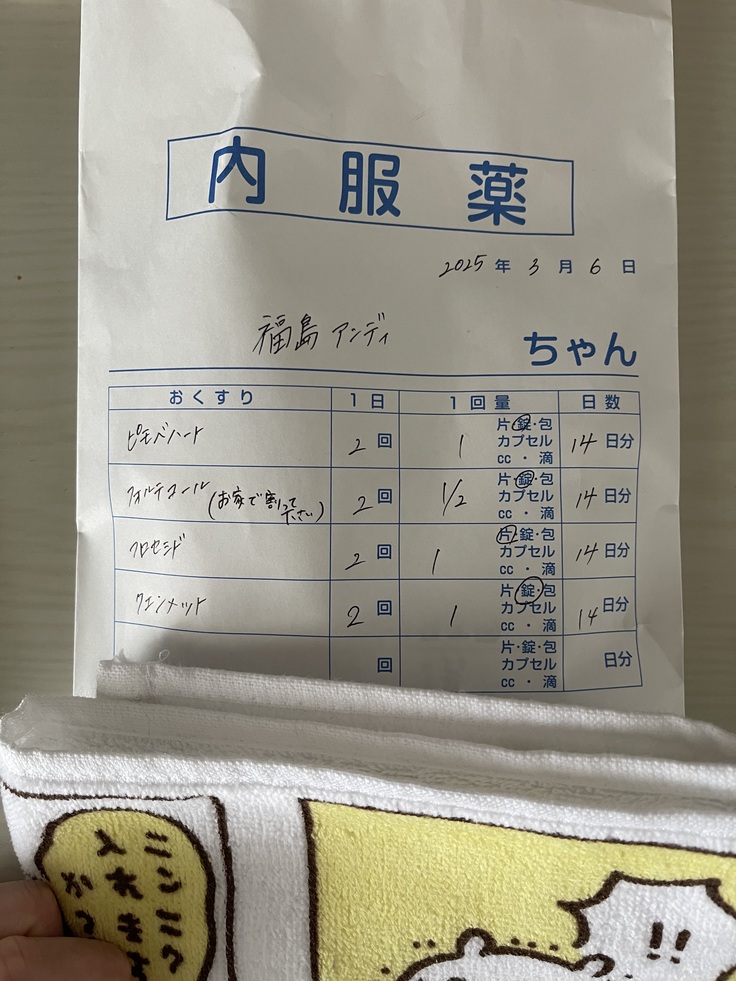 内服薬
2025年3月6日
福島アンディ ちゃん
おくすり 1日 1回量 日数
ピモベハート 2回 1 片・錠・包 カプセル cc・滴 14日分
フォルテコール(お家で割って下さい) 2回 1/2 片・錠・包 カプセル cc・滴 14日分
フロセミド 2回 1 片・錠・包 カプセル cc・滴 14日分
クエンメット 2回 1 片・錠・包 カプセル cc・滴 14日分
回 片・錠・包 カプセル cc・滴 日分
ニンニク
入れます
か?
!!